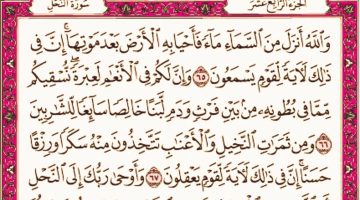 الجزء الرابع عشر
سورة النحل
وَاللَّهُ أَنزَلَ مِنَ السَّمَاءِ مَاءً فَأَحْيَا بِهِ الْأَرْضَ بَعْدَ مَوْتِهَا ۚ إِنَّ فِي
ذَٰلِكَ لَآيَةً لِّقَوْمٍ يَسْمَعُونَ ٦٥ وَإِنَّ لَكُمْ فِي الْأَنْعَامِ لَعِبْرَةً ۖ نُّسْقِيكُم
مِّمَّا فِي بُطُونِهِ مِن بَيْنِ فَرْثٍ وَدَمٍ لَّبَنًا خَالِصًا سَائِغًا لِّلشَّارِبِينَ
٦٦ وَمِن ثَمَرَاتِ النَّخِيلِ وَالْأَعْنَابِ تَتَّخِذُونَ مِنْهُ سَكَرًا وَرِزْقًا
حَسَنًا ۗ إِنَّ فِي ذَٰلِكَ لَآيَةً لِّقَوْمٍ يَعْقِلُونَ ٦٧ وَأَوْحَىٰ رَبُّكَ إِلَى النَّحْلِ